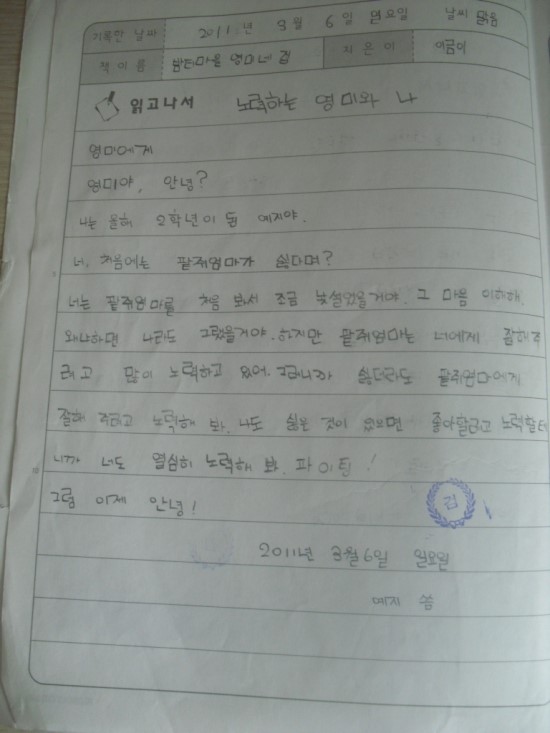 기록한 날짜 2011년 3월 6일 일요일 날씨 맑음
책 이름 밤티마을 영미네 집 지은이 이금이
읽고나서 노력하는 영미와 나
영미에게
영미야, 안녕?
나는 올해 2학년이 된 예지야.
너, 처음에는 팥쥐엄마가 싫다며?
너는 팥쥐엄마를 처음 봐서 조금 낯설었을거야. 그 마음 이해해.
왜냐하면 나라도 그랬을거야. 하지만 팥쥐엄마는 너에게 잘해주
려고 많이 노력하고 있어. 그러니까 싫더라도 팥쥐엄마에게
잘해 주려고 노력해 봐. 나도 싫은 것이 있으면 좋아할려고 노력할테
니까 너도 열심히 노력해 봐. 파이팅!
그럼 이제 안녕!
검
2011년 3월 6일 일요일
예지 씀